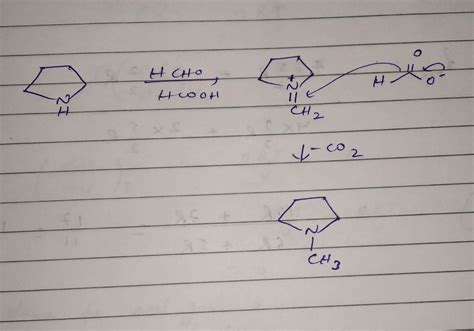 HCHO,
HCOOH
N
H
N+
CH2
H
O
O-
-CO2
N
CH3